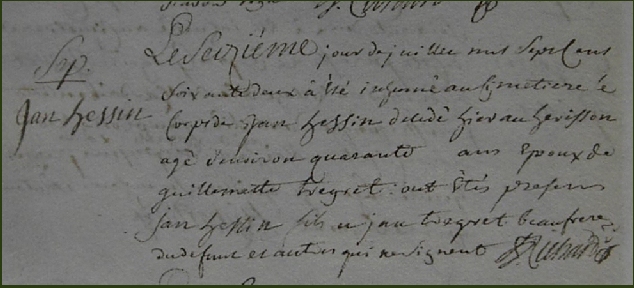 Le Seizième jour de juillet mil Sept Cent
Sep.
Soixante deux à été inhumé au Simetiere le
Jan hessin
Corps de Jan hessin décédé hier au herisson
agé denviron quarante ans Epoux de
guillemette tregret ont étés presens
jan hessin fils jan tregret beaufrere
du defunt et autres qui ne signent